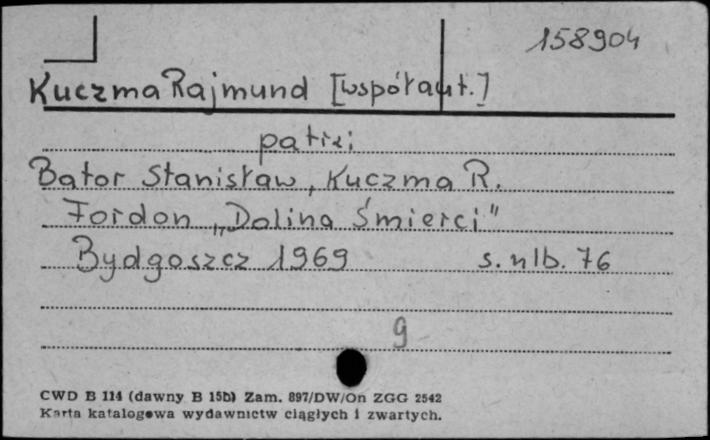 158904
Kuczma Rajmund [współaut.]
patrz:
Bator Stanisław, Kuczma R.
Fordon „Dolina Śmierci"
Bydgoszcz 1969 s. nlb. 76
g
CWD B 114 (dawny B 15b) Zam. 897/DW/On ZGG 2542
Karta katalogowa wydawnictw ciągłych i zwartych.